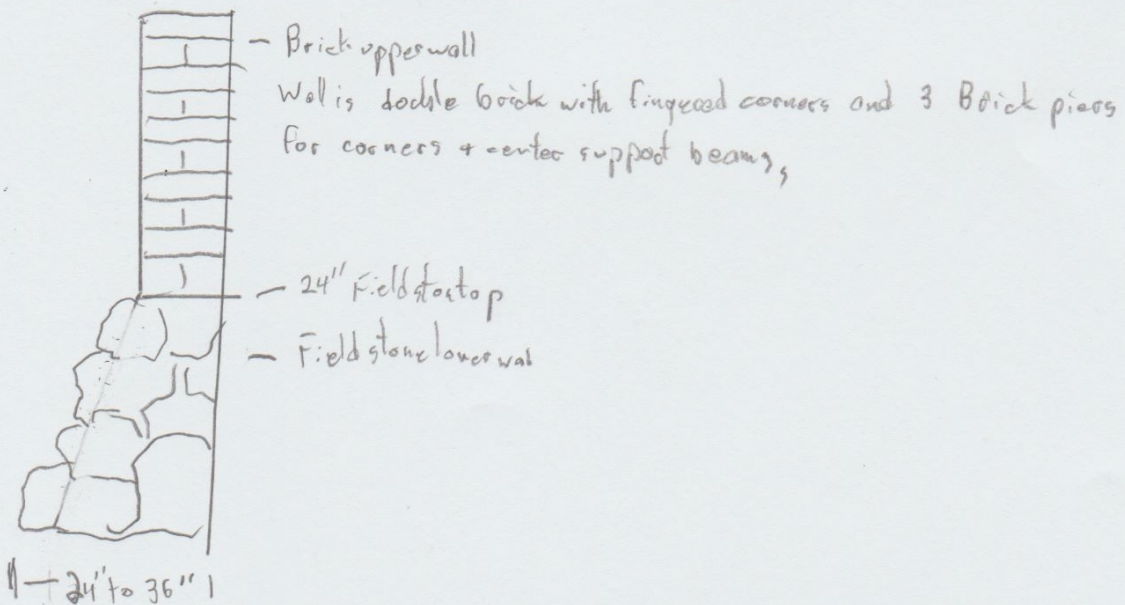 Brick upper wall
Wal is double brick with fingered corners and 3 Brick piers
for corners + center support beams,
24" Fieldstone top
Fieldstone lower wal
24" to 36"